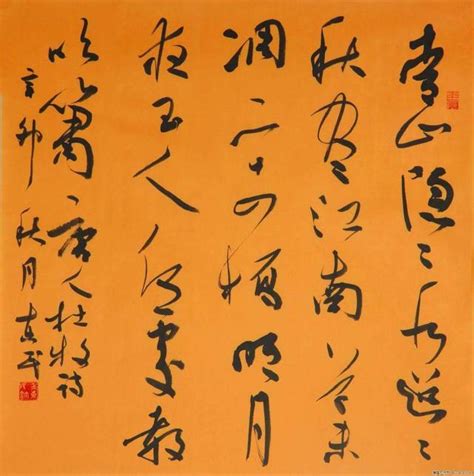 青山隐々水迢々
秋尽江南草未
凋二十四橋明月
夜玉人何處教
吹簫唐人杜牧诗
辛卯秋月